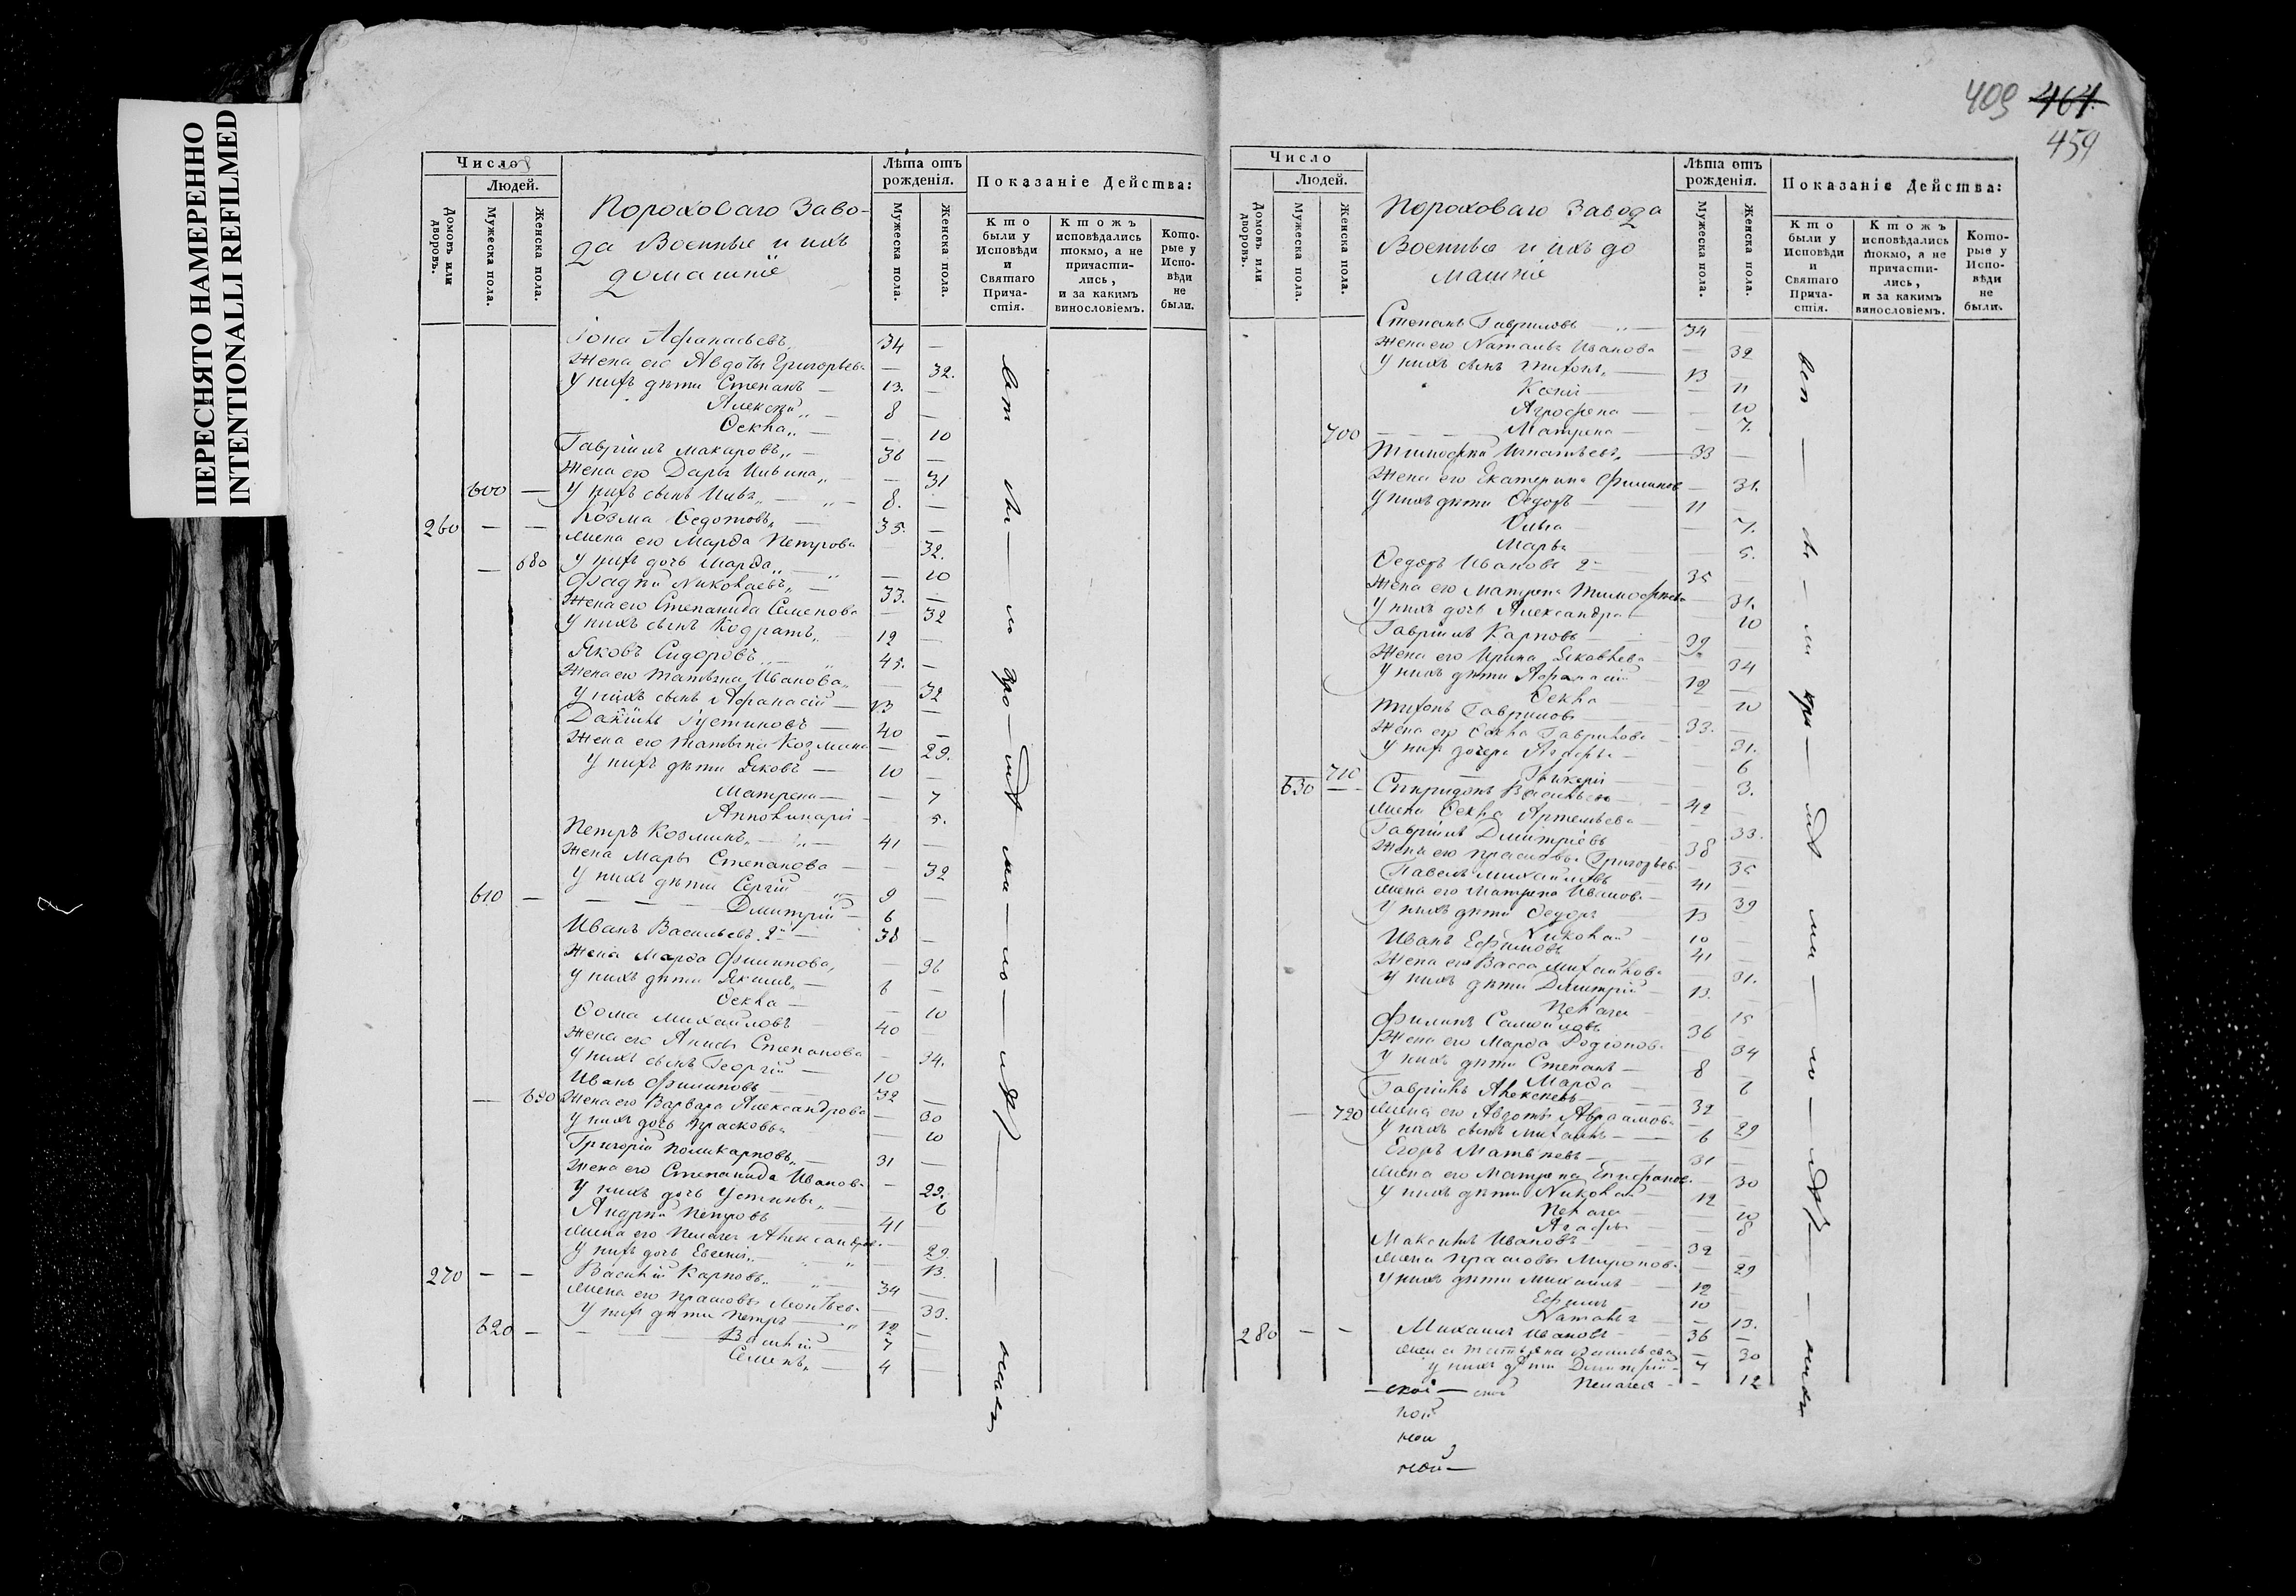 ПЕРЕСНЯТО НАМЕРЕННО
INTENTIONALLI REFILMED
Число
Людей.
Домовъ или дворовъ.
Мужеска пола.
Женска пола.
Пороховаго Заво-
да Военные и ихъ
домашніе
Лѣта отъ рожденія.
Мужеска пола.
Женска пола.
Показаніе Действа:
Кто были у Исповѣди и Святаго Прича-стія.
Ктожъ исповѣдались токмо, а не причасти-лись, и за какимъ винословіемъ.
Кото-рые у Испо-вѣди не были.
Іона Афанасьевъ 34 —
Жена его Авдотья Григорьева — 32.
У нихъ дѣти Степанъ — 13. —
Алексѣй — 8 —
Ѳекла — — 10
Гавріилъ Макаровъ — 36 —
Жена его Дарья Ильина — 31
600 — У нихъ сынъ Илья — 8. —
260 — — Козма Ѳедотовъ 35. —
Жена его Марѳа Петрова 32.
— 680 У нихъ дочь Марѳа — 10
Фадѣй Николаевъ 33. —
Жена его Степанида Семенова — 32
У нихъ сынъ Кодратъ — 12 —
Яковъ Сидоровъ — 45. —
Жена его Татьяна Иванова — 32
У нихъ сынъ Афанасій — 13 —
Даніилъ Густиновъ — 40 —
Жена его Татьяна Козмина — 29.
У нихъ дѣти Яковъ — 10 —
Матрена — — 7
Апполинарія — 5.
Петръ Козминъ — 41 —
Жена Марья Степанова — — 32
У нихъ дѣти Сергій — 9 —
610 — — — — Дмитрій — 6 —
Иванъ Васильевъ 2й — 38 —
Жена Марѳа Филипова — 36
У нихъ дѣти Якимъ — 6 —
Ѳекла — — 10
Ѳома Михайловъ 40 —
Жена его Анисья Степанова — 34.
У нихъ сынъ Георгій — 10
Иванъ Филиповъ — 32 —
— 690 Жена его Варвара Александрова — 30
У нихъ дочь Прасковья — 10
Григорій Поликарповъ — 31 —
Жена его Степанида Иванова — 29.
У нихъ дочь Устинья — 6
Андрѣй Петровъ 41 —
Жена его Пелагея Александрова — 29.
У нихъ дочь Евгенія — 13.
270 — — Василій Карповъ 34 —
Жена его Прасковья Леонтьева — 33.
У нихъ дѣти Петръ — 12 —
620 — — Василій 7 —
Семенъ — 4
409 464.
459
Число
Людей.
Домовъ или дворовъ.
Мужеска пола.
Женска пола.
Пороховаго Завода
Военные и ихъ до
машніе
Лѣта отъ рожденія.
Мужеска пола.
Женска пола.
Показаніе Действа:
Кто были у Исповѣди и Святаго Прича-стія.
Ктожъ исповѣдались токмо, а не причасти-лись, и за какимъ винословіемъ.
Кото-рые у Испо-вѣди не были.
Степанъ Гавриловъ — 34 —
Жена его Наталья Иванова — 32
У нихъ сынъ Тихонъ — 13 —
Ксенія — — 11
Агрофена — — 10
700 — Матрена — — 7.
Тимофей Игнатьевъ — 33 —
Жена его Екатерина Филипова — 31.
У нихъ дѣти Ѳедоръ — 11 —
— 7.
Марья — 5.
Ѳедоръ Ивановъ 2й 35 —
Жена его Матрена Тимофеева — 31.
У нихъ дочь Александра — 10
Гавріилъ Карповъ — 39. —
Жена его Ирина Яковлева — 34
У нихъ дѣти Афанасій — 12 —
Ѳекла — 10
Тихонъ Гавриловъ — 33. —
Жена его Ѳекла Гаврилова — 31.
У нихъ дочери Агафья — 6
710 Гликерія — 3.
630 — Спиридонъ Васильевъ — 42 —
Жена Ѳекла Артемьева — 33.
Гавріилъ Дмитріевъ 38 —
Жена его Прасковья Григорьева — 35
Павелъ Михайловъ 41 —
Жена его Матрена Иванова — 39
У нихъ дѣти Ѳедоръ 13 —
Николай — 10 —
Иванъ Ефимовъ 41 —
Жена его Васса Михайлова — 31.
У нихъ дѣти Дмитрій — 13. —
Пелагея — 15
Филипъ Самойловъ 36 —
Жена его Марѳа Родіонова — 34
У нихъ дѣти Степанъ — 8 —
Марѳа — — 6
Гавріилъ Алексѣевъ — 32 —
— 720 Жена его Авдотья Авраамова — 29
У нихъ сынъ Михаилъ — 6 —
Егоръ Матвѣевъ — 31 —
Жена его Матрена Епифанова — 30
У нихъ дѣти Николай — 12 —
Пелагея — 10
Агафья — 8
Максимъ Ивановъ — 32 —
Жена Прасковья Миронова — 29
У нихъ дѣти Михаилъ — 12 —
Ефимъ 10 —
Наталья — 13.
280 — — Михаилъ Ивановъ — 36 —
Жена Татьяна — 30
У нихъ дѣти Дмитрій — 7 —
Пелагея — — 12